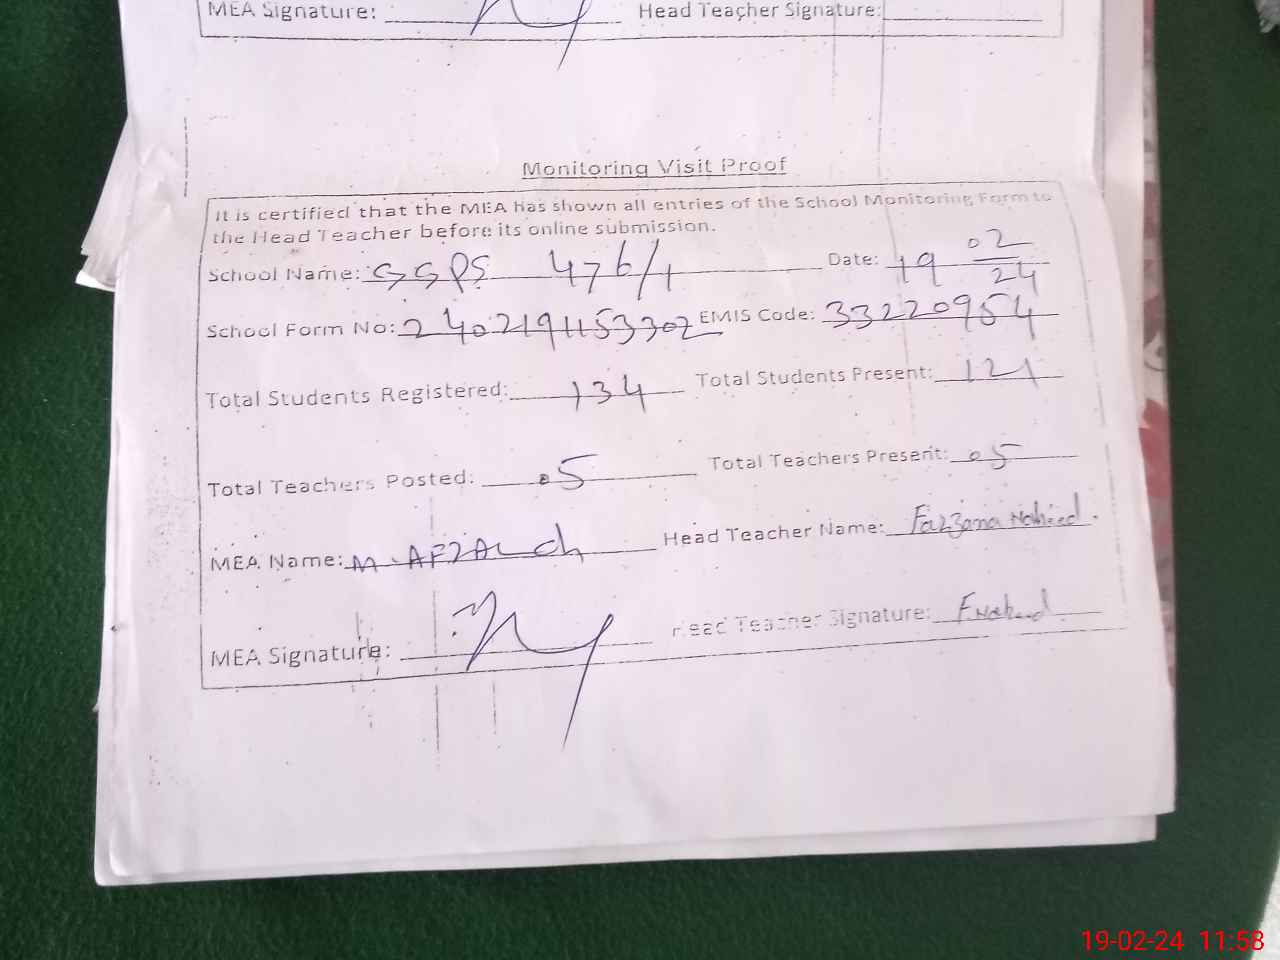 MEA Signature: Head Teacher Signature:
Monitoring Visit Proof
It is certified that the MEA has shown all entries of the School Monitoring Form to
the Head Teacher before its online submission.
School Name: GGPS 476/1 Date: 19 02/24
School Form No: 2402191153302 EMIS Code: 33220954
Total Students Registered: 134 Total Students Present: 121
Total Teachers Posted: 05 Total Teachers Present: 05
MEA Name: M. AFZAL ch Head Teacher Name: Farzana Naheed.
MEA Signature: Head Teacher Signature: F.Naheed
19-02-24 11:58